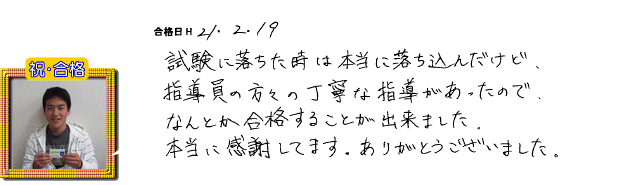 合格日 H 21. 2. 19
祝・合格
試験に落ちた時は本当に落ち込んだけど、
指導員の方々の丁寧な指導があったので、
なんとか合格することが出来ました。
本当に感謝してます。ありがとうございました。